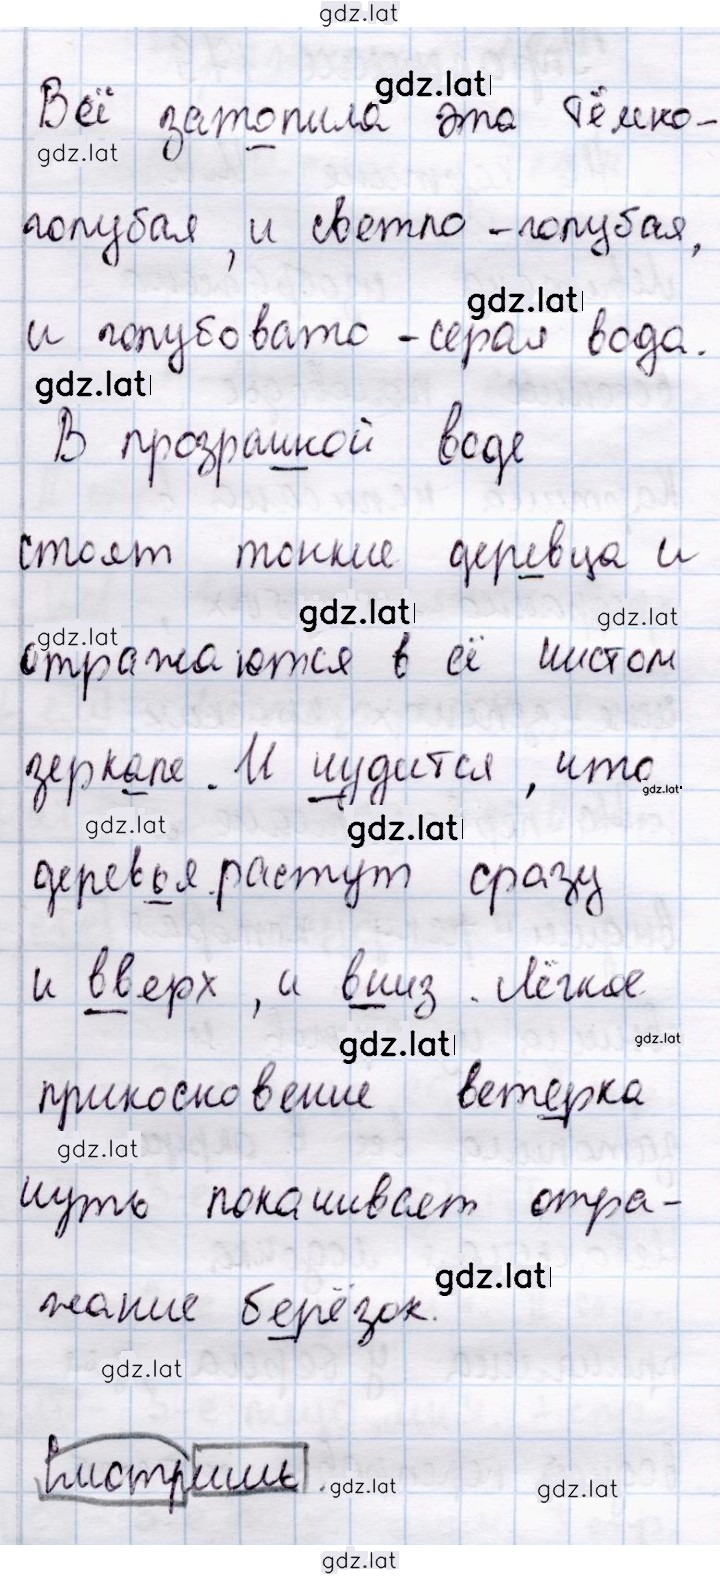 gdz.lat
gdz.lat
Всё затопила эта тёмно-
gdz.lat
голубая, и светло-голубая,
gdz.lat
и голубовато-серая вода.
gdz.lat
В прозрачной воде
стоят тонкие деревца и
gdz.lat gdz.lat
gdz.lat
отражаются в её чистом
зеркале. И чудится, что
gdz.lat
gdz.lat gdz.lat
деревья растут сразу
и вверх, и вниз. Лёгкое
gdz.lat gdz.lat
прикосновение ветерка
gdz.lat
чуть покачивает отра-
gdz.lat
жание берёзок.
gdz.lat
gdz.lat gdz.lat
gdz.lat